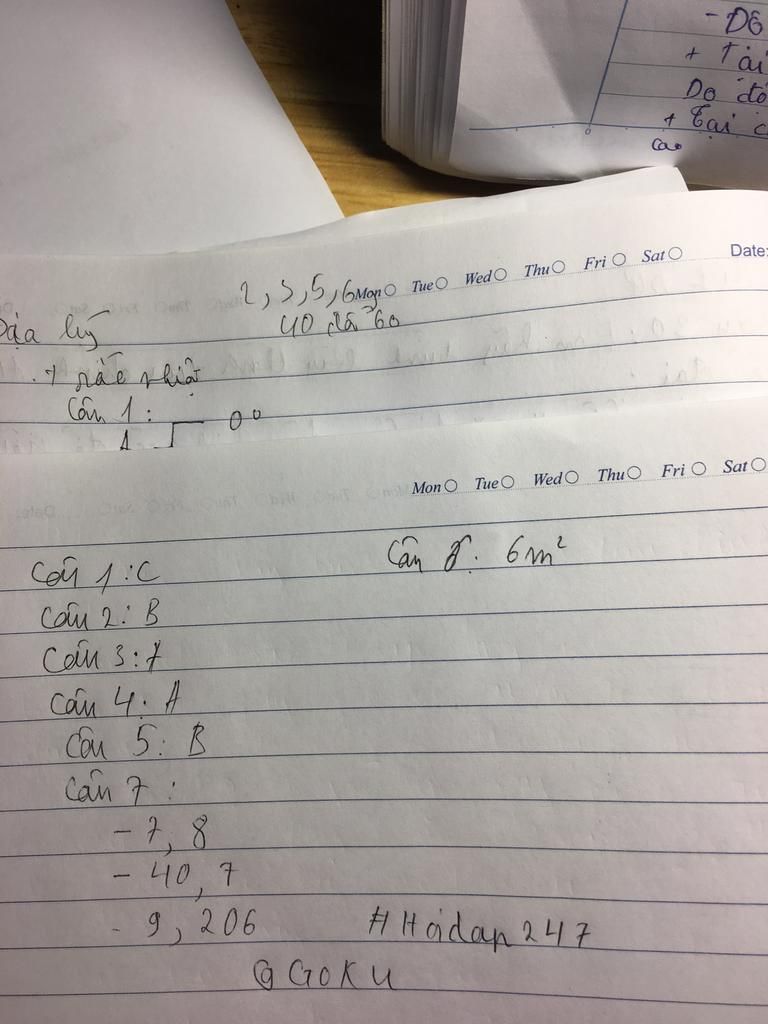 - Dô
+ Tại
Do đó
+ Tại c
Cao
Mon Tue Wed Thu Fri Sat Date:
2, 3, 5, 6
40 đã 60
Địa lý
Câu 1:
A 0°
Mon Tue Wed Thu Fri Sat
Câu 1: C
Câu 2: B
Câu 3: 7
Câu 4: A
Câu 5: B
Câu 7:
- 7, 8
- 40, 7
- 9, 206
Câu 8: 6m²
#Hoidap247
@GOKU